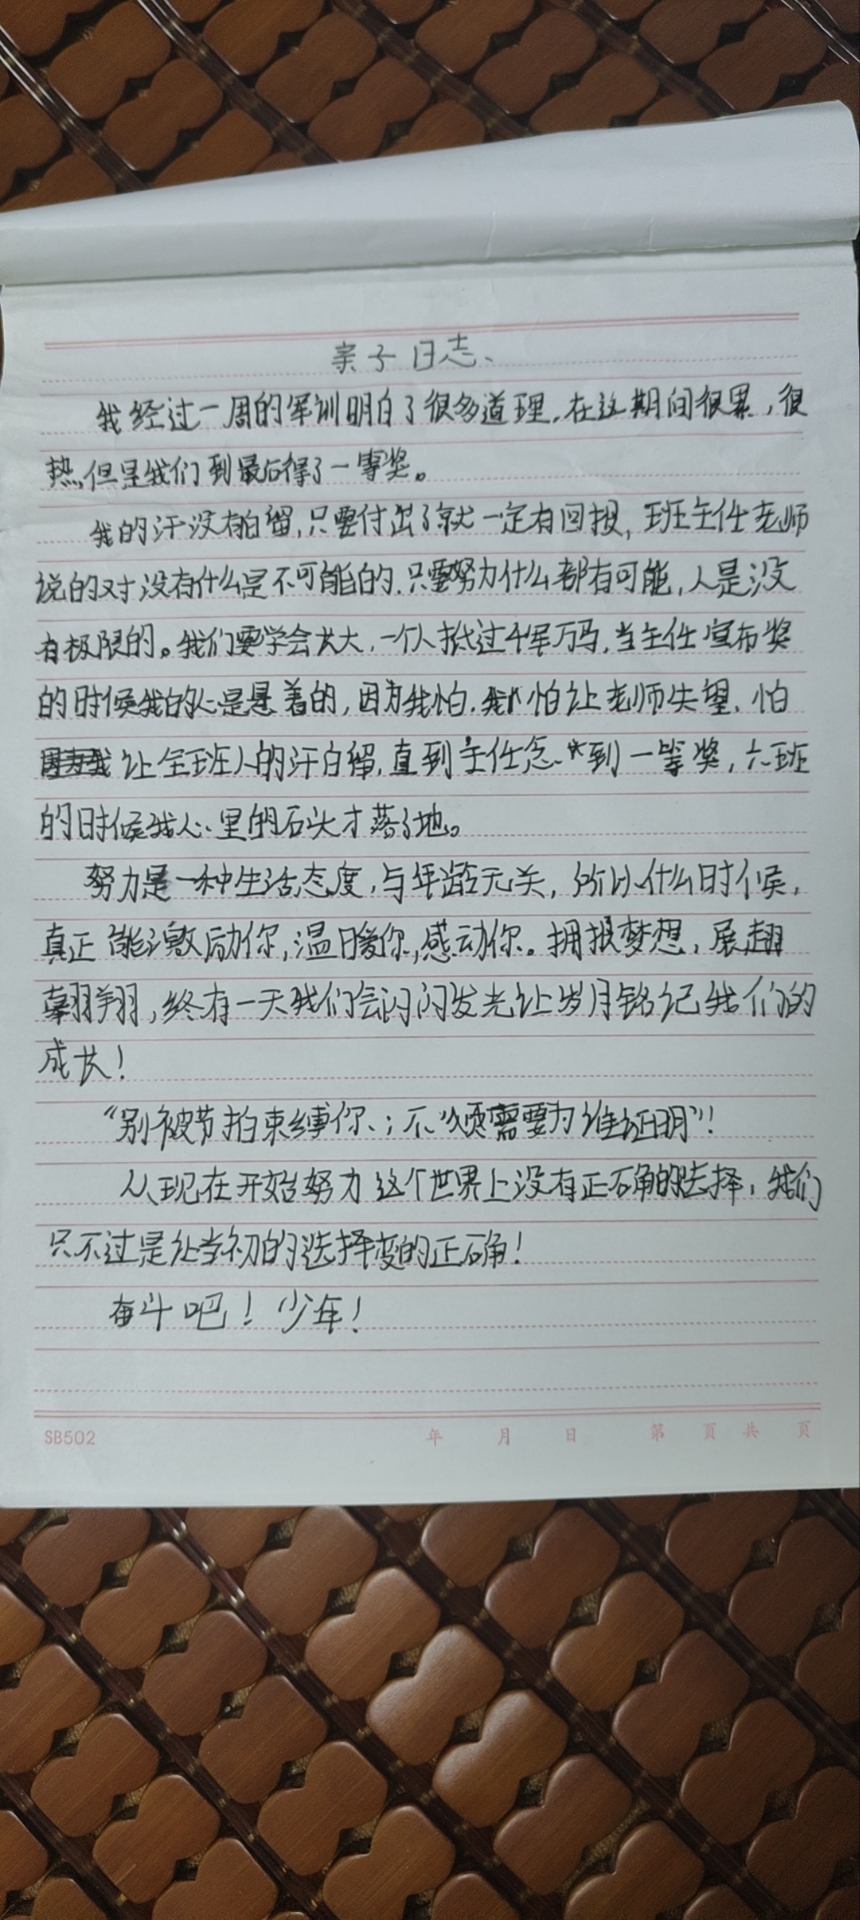 亲子日志、
我经过一周的军训明白了很多道理.在这期间很累,很
热,但是我们到最后得了一等奖。
我的汗没有白留,只要付出了就一定有回报,班主任老师
说的对没有什么是不可能的.只要努力什么都有可能,人是没
有极限的。我们要学会长大,一个人抵过千军万马,当主任宣布奖
的时候我的心是悬着的,因为我怕.我怕让老师失望、怕
让全班人的汗白留,直到主任念到一等奖,六班
的时候我心里的石头才落了地。
努力是一种生活态度,与年龄无关,所以什么时候,
真正能激励你,温暖你,感动你。拥抱梦想,展翅
翱翔,终有一天我们会闪闪发光让岁月铭记我们的
成长!
“别被节拍束缚你、;不必须需要为谁证明”!
从现在开始努力这个世界上没有正确的选择,我们
只不过是让当初的选择变的正确!
奋斗吧!少年!
SB502 年 月 日 第 页 共 页